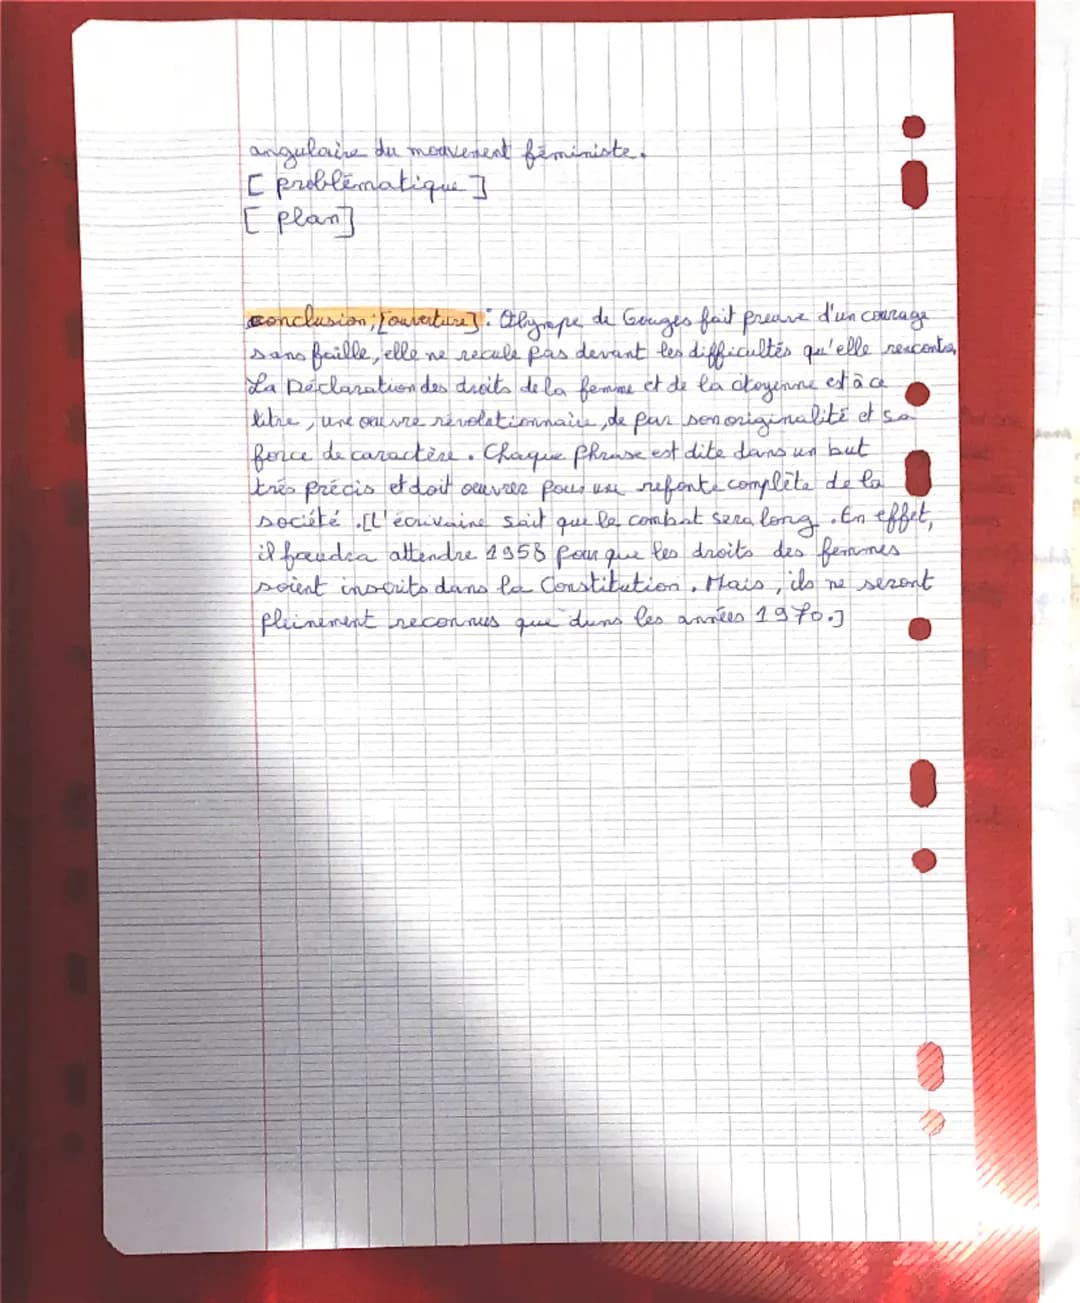 angulaire du mouvement féministe.
[ problématique ]
[ plan]
conclusion ; [ouverture] : Olympe de Gouges fait preuve d'un courage
sans faille, elle ne recule pas devant les difficultés qu'elle rencontre,
La Déclaration des droits de la femme et de la citoyenne est à ce
titre, une œuvre révolutionnaire, de par son originalité et sa
force de caractère. Chaque phrase est dite dans un but
très précis et doit œuvrer pour une refonte complète de la
société. [L'écrivaine sait que le combat sera long. En effet,
il faudra attendre 1958 pour que les droits des femmes
soient inscrits dans la Constitution. Mais, ils ne seront
pleinement reconnus que dans les années 1970.]